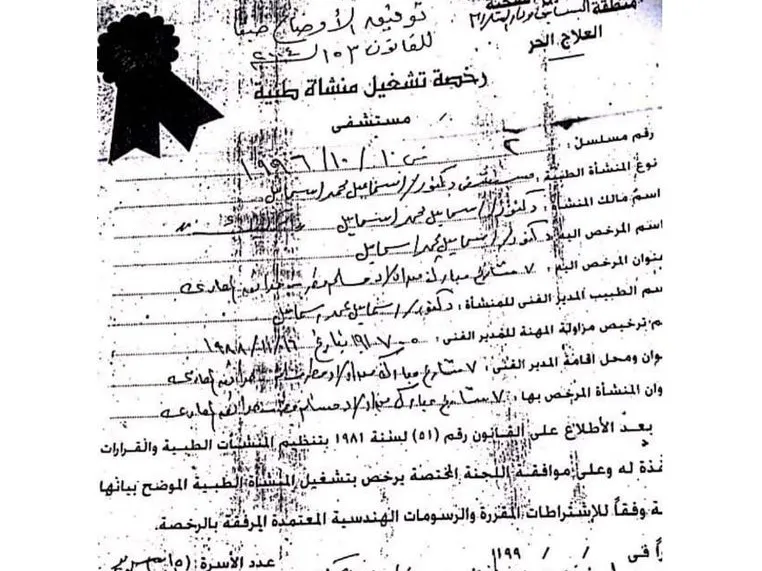 منطقة البساتين ودار السلام
العلاج الحر
توفيق الأوضاع طبقا
للقانون ١٥٣ لـ ٢٠٠٤
رخصة تشغيل منشأة طبية
مستشفى
رقم مسلسل : ٢ فى ١٠ / ١٠ / ١٩٩٦
نوع المنشأة الطبية : مستشفى دكتور / اسماعيل محمد اسماعيل
اسم مالك المنشأة : دكتور / اسماعيل محمد اسماعيل
اسم المرخص اليه دكتور / اسماعيل محمد اسماعيل
عنوان المرخص اليه : ٧ شارع مبارك
سم الطبيب المدير الفنى للمنشأة : دكتور / اسماعيل محمد اسماعيل
م ترخيص مزاولة المهنة للمدير الفنى : بتاريخ ١٦ / ١١ / ١٩٨٨
وان ومحل اقامة المدير الفنى : ٧ شارع مبارك
وان المنشأة المرخص بها : ٧ شارع مبارك
بعد الأطلاع على القانون رقم (٥١) لسنة ١٩٨١ بتنظيم المنشآت الطبية والقرارات
فذة له وعلى موافقة اللجنة المختصة يرخص بتشغيل المنشأة الطبية الموضح بيانها
ة وفقاً للإشتراطات المقررة والرسومات الهندسية المعتمدة المرفقة بالرخصة.
راً فى / / ١٩٩
عدد الأسرة : (١٥)